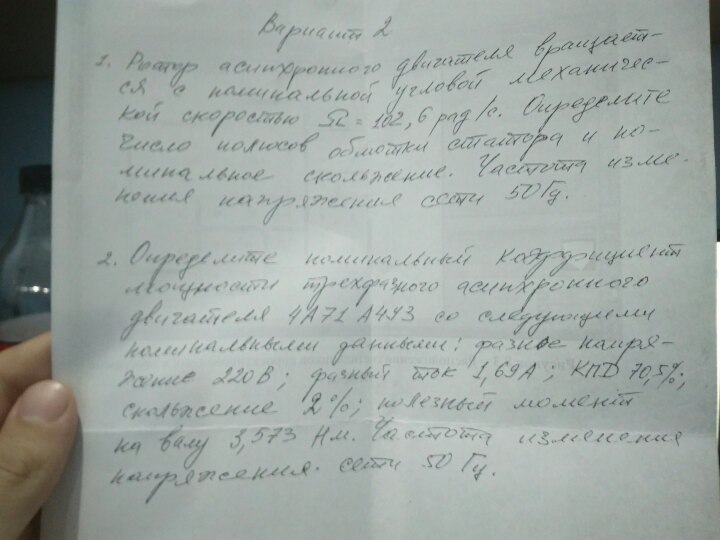 Вариант 2
1. Ротор асинхронного двигателя вращает-
ся с номинальной угловой механичес-
кой скоростью Ω = 102,6 рад/с. Определите
число полюсов обмотки статора и но-
минальное скольжение. Частота изме-
нения напряжения сети 50 Гц.
2. Определите номинальный коэффициент
мощности трехфазного асинхронного
двигателя 4А71А4У3 со следующими
номинальными данными: фазное напря-
жение 220 В; фазный ток 1,69 А; КПД 70,5%;
скольжение 2%; полезный момент
на валу 3,573 Нм. Частота изменения
напряжения сети 50 Гц.